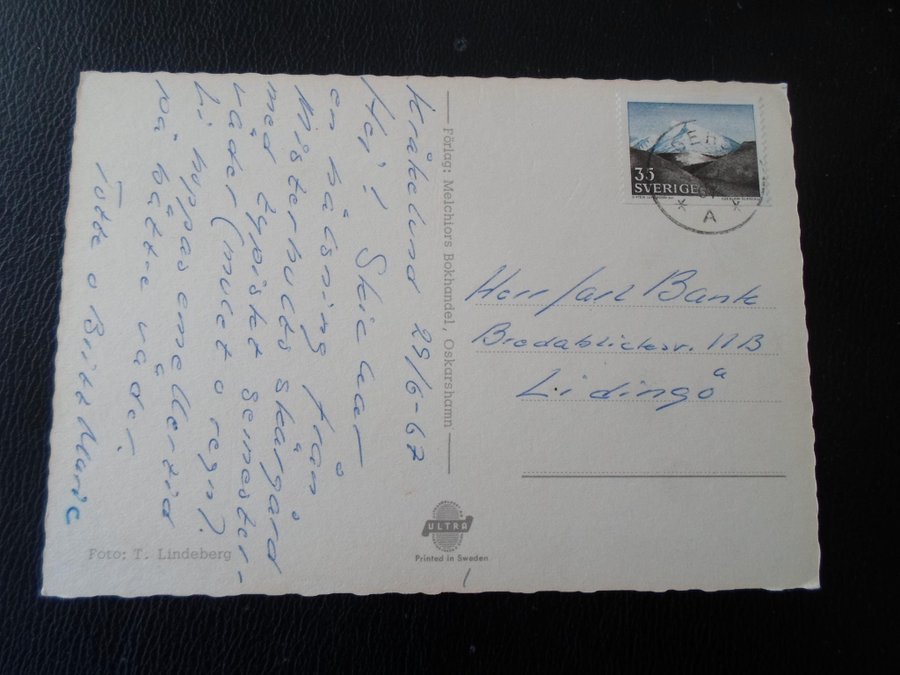 Kråkelund 29/6-67
Hej! Skickar
en hälsning från
Misterhults skärgård
med typiskt semester-
väder (mulet o regn).
Vi hoppas emellertid
på bättre väder.
Totte o Britt Marie
Foto: T. Lindeberg
Förlag: Melchiors Bokhandel, Oskarshamn
ULTRA
Printed in Sweden
35
SVERIGE
A
Herr Jarl Bank
Bredablicksv. 11B
Lidingö